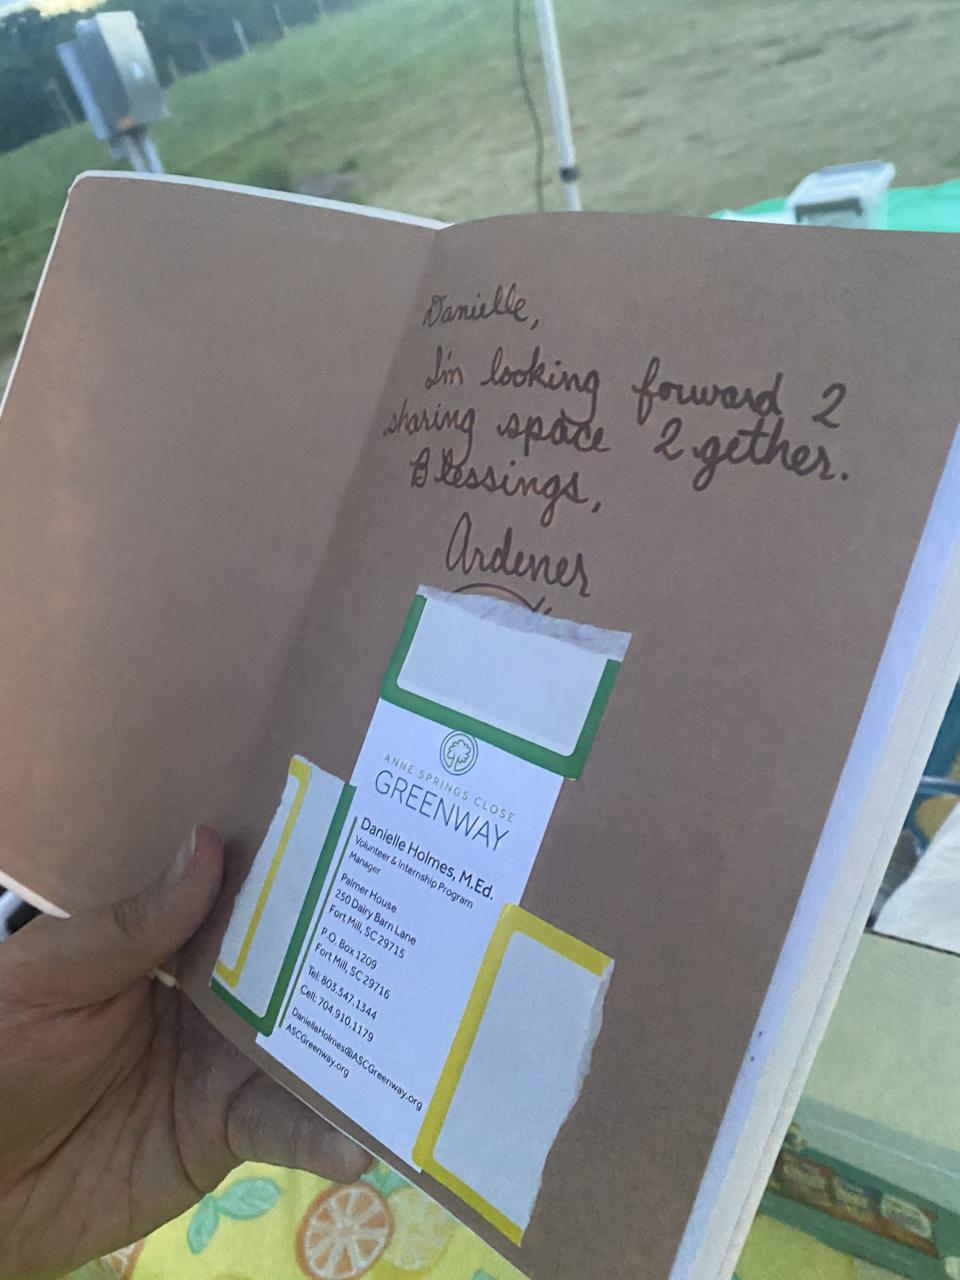 Danielle,
I'm looking forward 2
sharing space 2.gether.
Blessings,
Ardener
ANNE SPRINGS CLOSE
GREENWAY
Danielle Holmes, M.Ed.
Volunteer & Internship Program
Manager
Palmer House
250 Dairy Barn Lane
Fort Mill, SC 29715
P.O. Box 1209
Fort Mill, SC 29716
Tel: 803.547.1344
Cell: 704.910.1179
DanielleHolmes@ASCGreenway.org
ASCGreenway.org